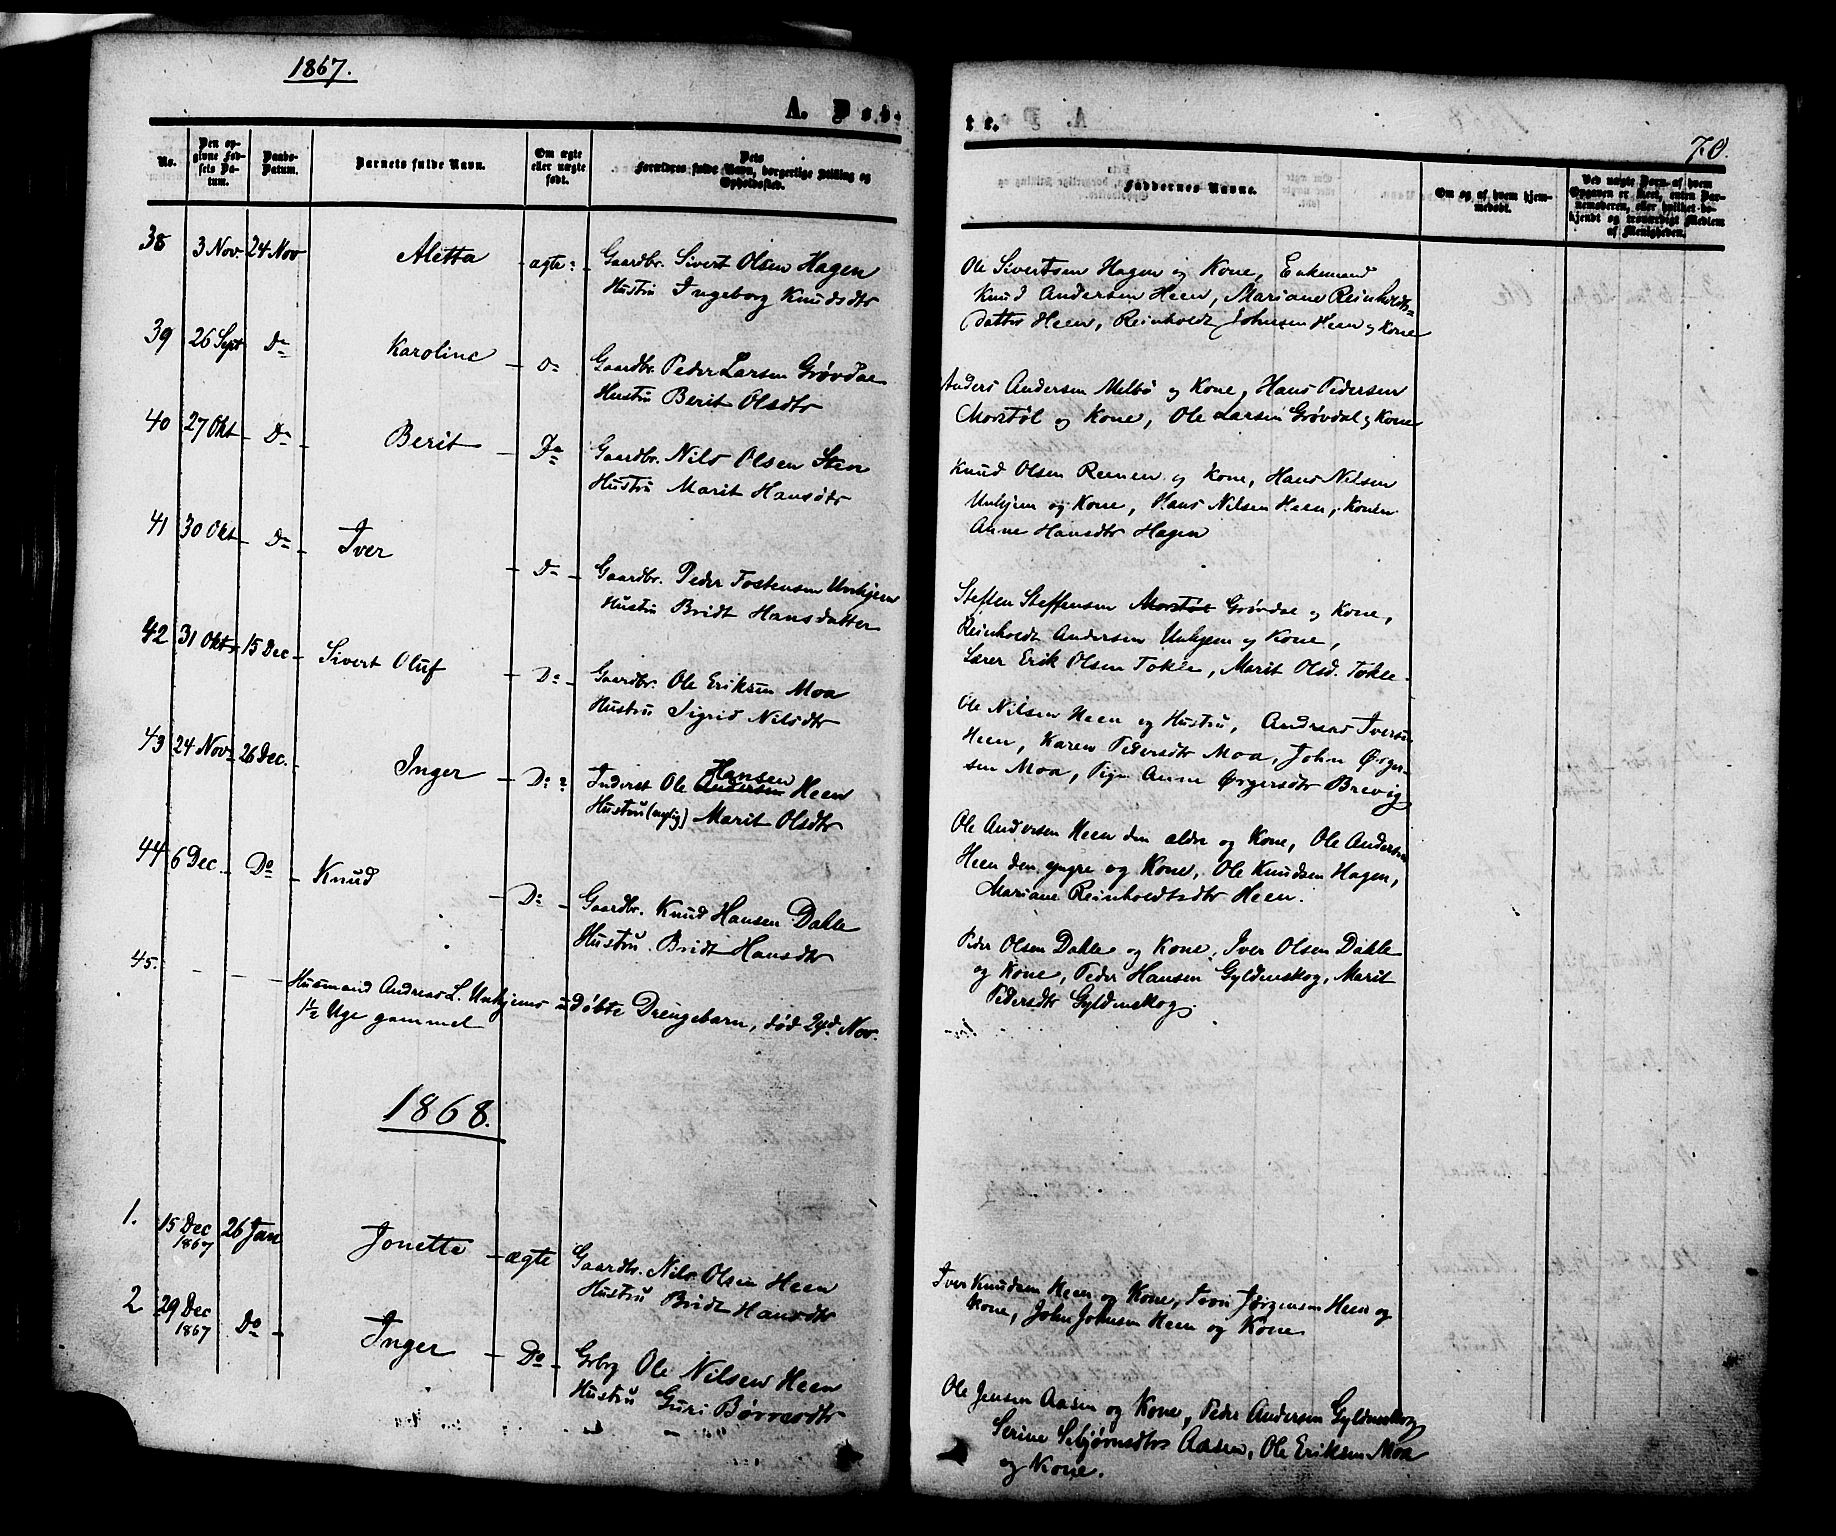 1867.
A. Døb-
No.
Den op-
givne Fød-
sels Da-
tum.
Daabs-
Datum.
Barnets fulde Navn.
Om ægte
eller uægte
født.
Dets
Forældres fulde Navn, borgerlige Stilling og
Opholdssted.
38 3 Nov 24 Nov Aletta ægte Gaardbr. Sivert Olsen Hagen
Hustru Ingeborg Knudsdtr
39 26 Sept Do Karoline Do Gaardbr. Peder Larsen Grøvdal
Hustru Berit Olsdtr
40 27 Okt Do Berit Do Gaardbr. Nils Olsen Sten
Hustru Marit Hansdtr
41 30 Okt Do Iver Do Gaardbr. Peder Tostensen Unhjem
Hustru Bridt Hansdatter
42 31 Okt 15 Dec Sivert Oluf Do Gaardbr. Ole Eriksen Moa
Hustru Sigrid Nilsdtr
43 24 Nov 26 Dec. Inger Do Inderst Ole Andersen Hansen Heen
Hustru Marit Olsdtr
44 6 Dec Do Knud Do Gaardbr. Knud Hansen Dahle
Hustru Bridt Hansdtr
45. Husmand Andreas L. Unhjems udøbte Drengebarn, død 29d. Nov.
1½ Uge gammel
1868.
1. 15 Dec 1867 26 Jan Jonette ægte Gaardbr. Nils Olsen Heen
Hustru Bridt Hansdtr
2 29 Dec 1867 Do Inger Do Grbrg Ole Nilsen Heen
Hustru Guri Børresdtr
te.
70.
Faddernes Navne.
Om og af hvem hjem-
medøbt.
Ved uægte Børn af hvem
Opgaven er skeet, enten Bar-
nemoderen, eller hvilket be-
kjendt og troværdigt Medlem
af Menigheden.
Ole Sivertsen Hagen og Kone, Enkemand
Knud Andersen Heen, Mariane Reinholdts-
datter Heen, Reinholdt Johnsen Heen og Kone
Anders Andersen Melbø og Kone, Hans Pedersen
Morstøl og Kone, Ole Larsen Grøvdal og Kone
Knud Olsen Remen og Kone, Hans Nilsen
Unhjem og Kone, Hans Nilsen Heen, Konen
Anne Hansdtr Hagen
Steffen Steffensen Morstøl Grøvdal og Kone,
Reinholdt Andersen Unhjem og Kone,
Lærer Erik Olsen Tokle, Marit Olsd. Tokle.
Ole Nilsen Heen og Hustru, Andreas Iversen
Heen, Karen Pedersdtr Moa, John Ørger-
sen Moa, Pige Anne Ørgersdtr Brevig
Ole Andersen Heen den ældre og Kone, Ole Andersen
Heen den yngre og Kone, Ole Knudsen Hagen,
Mariane Reinholdtsdtr Heen.
Peder Olsen Dahle og Kone, Iver Olsen Dahle
og Kone, Peder Hansen Gyldenskog, Marit
Pedersdtr Gyldenskog.
Iver Knudsen Heen og Kone, Iver Jørgensen Heen og
Kone, John Johnsen Heen og Kone
Ole Jensen Aasen og Kone, Peder Andersen Gyldenskog
Serine Sebjørnsdtr Aasen, Ole Eriksen Moa
og Kone.